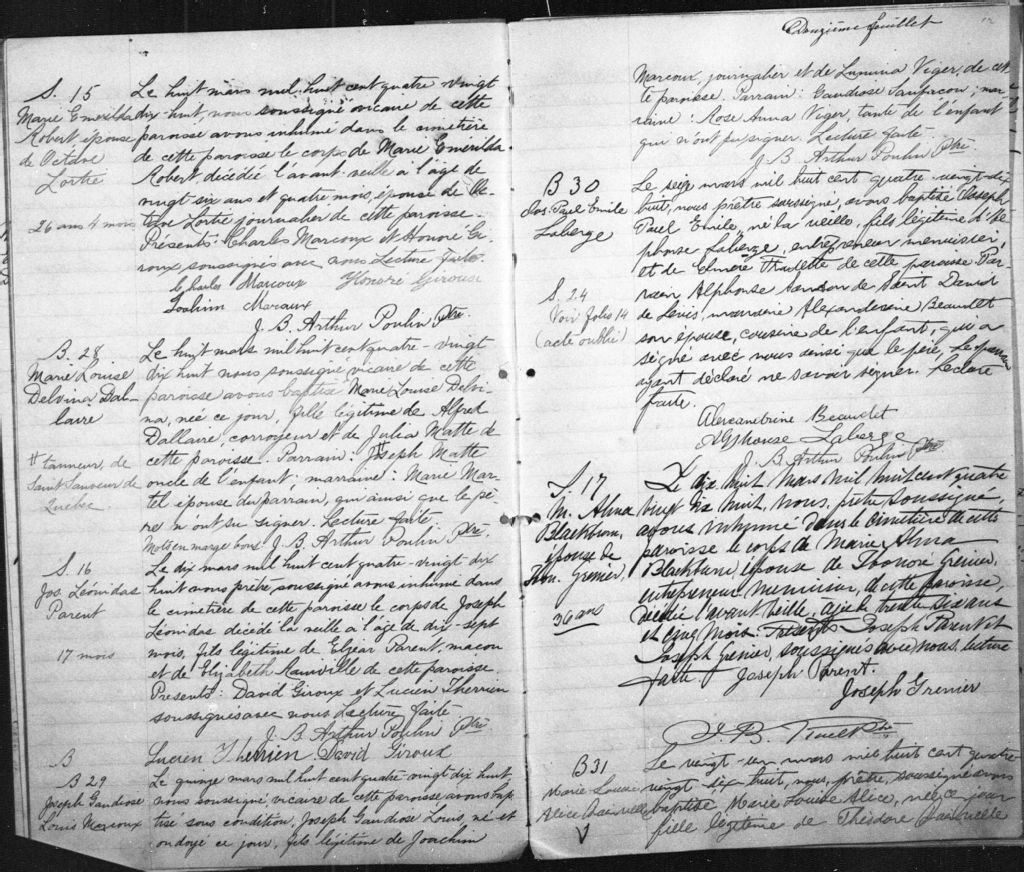 S. 15
Marie Emerilda
Robert, épouse
de Octave
Lortie
26 ans 4 mois
Le huit mars mil huit cent quatre-vingt
dix-huit, nous soussigné vicaire de cette
paroisse avons inhumé dans le cimetière
de cette paroisse le corps de Marie Emerilda
Robert, décédée l'avant-veille à l'âge de
vingt six ans et quatre mois, épouse de Oc-
tave Lortie journalier de cette paroisse.
Présents: Charles Marcoux et Honoré Gi-
roux, soussignés avec nous Lecture faite.
Charles Marcoux Honoré Giroux
Joachim Marcoux
J. B. Arthur Poulin Ptre
B. 28
Marie Louise
Delvina Dal-
laire
# tanneur, de
Saint Sauveur de
Québec.
Le huit mars mil huit cent quatre-vingt
dix huit nous soussigné vicaire de cette
paroisse avons baptisé Marie Louise Delvi-
na, née ce jour, fille légitime de Alfred
Dallaire, corroyeur et de Julia Matte de
cette paroisse. Parrain: Joseph Matte
oncle de l'enfant; marraine: Marie Mar-
tel épouse du parrain, qui ainsi que le pè-
re n'ont su signer. Lecture faite
Mots en marge bons J. B. Arthur Poulin Ptre.
S. 16
Jos. Léonidas
Parent
17 mois
Le dix mars mil huit cent quatre-vingt dix
huit nous prêtre soussigné avons inhumé dans
le cimetière de cette paroisse le corps de Joseph
Léonidas décédé la veille à l'âge de dix-sept
mois, fils légitime de Elzéar Parent, maçon
et de Elizabeth Rainville de cette paroisse
Présents: David Giroux et Lucien Therrien
soussignés avec nous Lecture faite
J. B. Arthur Poulin Ptre.
Lucien Therrien David Giroux
B
B 29
Joseph Gaudiose
Louis Marcoux
Le quinze mars mil huit cent quatre-vingt dix huit,
nous soussigné vicaire de cette paroisse avons bap-
tisé sous condition, Joseph Gaudiose Louis, né et
ondoyé ce jour, fils légitime de Joachim
Douzième feuillet
12
Marcoux, journalier et de Lumina Viger, de cet-
te paroisse. Parrain: Gaudiose Sanfaçon; mar-
raine: Rose Anna Viger, tante de l'enfant
qui n'ont pu signer. Lecture faite
J. B. Arthur Poulin Ptre
B 30
Jos. Paul Emile
Laberge
S. 24
Voir folio 14
(acte oublié)
Le seize mars mil huit cent quatre-vingt-dix
huit, nous prêtre soussigné, avons baptisé Joseph
Paul Emile, né la veille, fils légitime d'Al-
phonse Laberge, entrepreneur menuisier,
et de Elmere Audette de cette paroisse Par-
rain Alphonse Samson de Saint David
de Lévis, marraine Alexanderine Beaudet
son épouse, cousine de l'enfant, qui a
signé avec nous ainsi que le père, Le parrain
ayant déclaré ne savoir signer. Lecture
faite.
Alexandrine Beaudet
Alphonse Laberge
J. B. Arthur Poulin Ptre
S 17
M. Alma
Blackburn,
épouse de
Hon. Grenier,
36 ans
Le dix huit mars mil huit cent quatre
vingt dix huit, nous, prêtre soussigné,
avons inhumé dans le cimetière de cette
paroisse le corps de Marie Alma
Blackburn, épouse de Honoré Grenier,
entrepreneur menuisier, de cette paroisse,
décédée l'avant veille, agée de trente six ans
et cinq mois. Présents Joseph Parent et
Joseph Grenier, soussignés avec nous, lecture
faite. Joseph Parent.
Joseph Grenier
J. B. Ruel Ptre
B31
Marie Louise
Alice
Le vingt-un mars mil huit cent quatre
vingt-dix huit, nous, prêtre, soussigné avons
baptisé Marie Louise Alice, née ce jour
fille légitime de Théodore